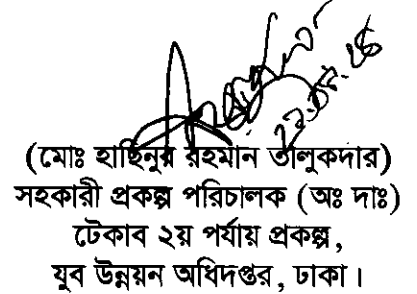 (মোঃ হাছিনুর রহমান তালুকদার)
সহকারী প্রকল্প পরিচালক (অঃ দাঃ)
টেকাব ২য় পর্যায় প্রকল্প,
যুব উন্নয়ন অধিদপ্তর, ঢাকা।